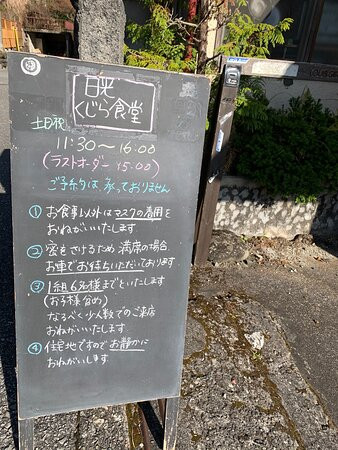 日光
くじら食堂
土日祝
11:30〜16:00
(ラストオーダー 15:00)
ご予約は承っておりません
① お食事以外はマスクの着用を
おねがいいたします
② 密をさけるため 満席の場合
お車でお待ちいただいております
③ 1組6名様までといたします
(お子様含め)
なるべく少人数でのご来店
おねがいいたします
④ 住宅地ですのでお静かに
おねがいします